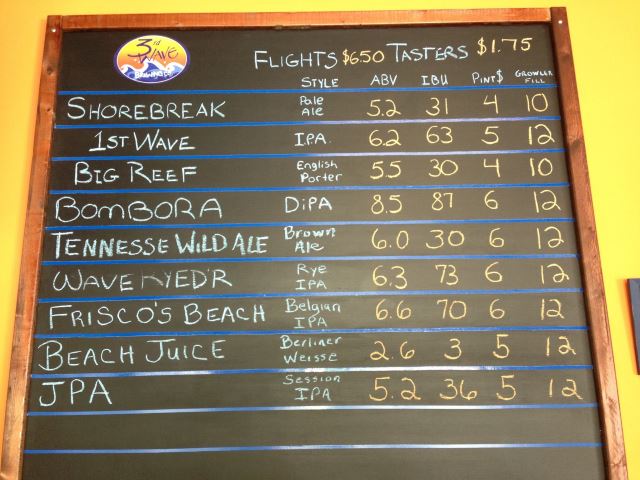 3rd WAVE
Brewing Co.
FLIGHTS $6.50 TASTERS $1.75
STYLE ABV IBU PINT$ GROWLER FILL
SHOREBREAK Pale Ale 5.2 31 4 10
1ST WAVE I.P.A. 6.2 63 5 12
BIG REEF English Porter 5.5 30 4 10
BOMBORA DIPA 8.5 87 6 12
TENNESSE WILD ALE Brown Ale 6.0 30 6 12
WAVE RYED'R Rye IPA 6.3 73 6 12
FRISCO'S BEACH Belgian IPA 6.6 70 6 12
BEACH JUICE Berliner Weisse 2.6 3 5 12
JPA Session IPA 5.2 36 5 12